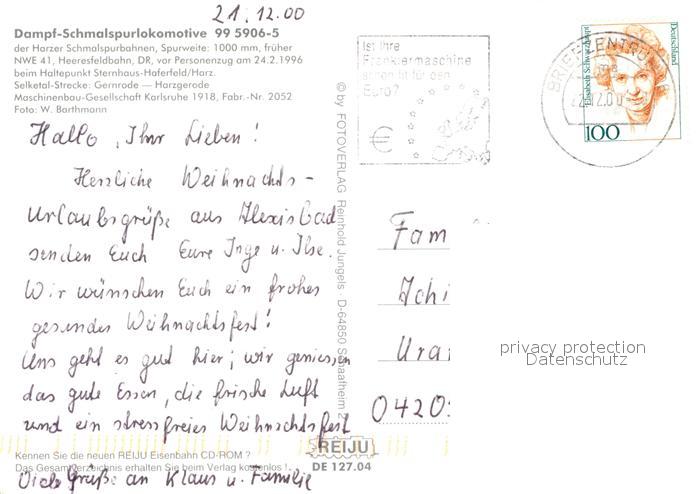 21.12.00
Dampf-Schmalspurlokomotive 99 5906-5
der Harzer Schmalspurbahnen, Spurweite: 1000 mm, früher
NWE 41, Heeresfeldbahn, DR, vor Personenzug am 24.2.1996
beim Haltepunkt Sternhaus-Haferfeld/Harz.
Selketal-Strecke: Gernrode — Harzgerode
Maschinenbau-Gesellschaft Karlsruhe 1918, Fabr.-Nr. 2052
Foto: W. Barthmann
Hallo, Ihr Lieben!
Herzliche Weihnachts-
urlaubsgrüße aus Alexisbad
senden Euch Eure Inge u. Ilse.
Wir wünschen Euch ein frohes
gesundes Weihnachtsfest!
Uns geht es gut hier; wir geniessen
das gute Essen, die frische Luft
und ein stressfreies Weihnachtsfest
Kennen Sie die neuen REIJU Eisenbahn CD-ROM ?
Das Gesamtverzeichnis erhalten Sie beim Verlag kostenlos !
Viele Grüße an Klaus u. Familie
© by FOTOVERLAG Reinhold Jungels D-64850 Schaafheim 2
REIJU
DE 127.04
Ist Ihre
Frankiermaschine
schon fit für den
Euro?
€
BRIEFZENTRUM
.12.00
Elisabeth Schwarzhaupt
Deutschland
100
Fam
Achi
Ura
0420
privacy protection
Datenschutz